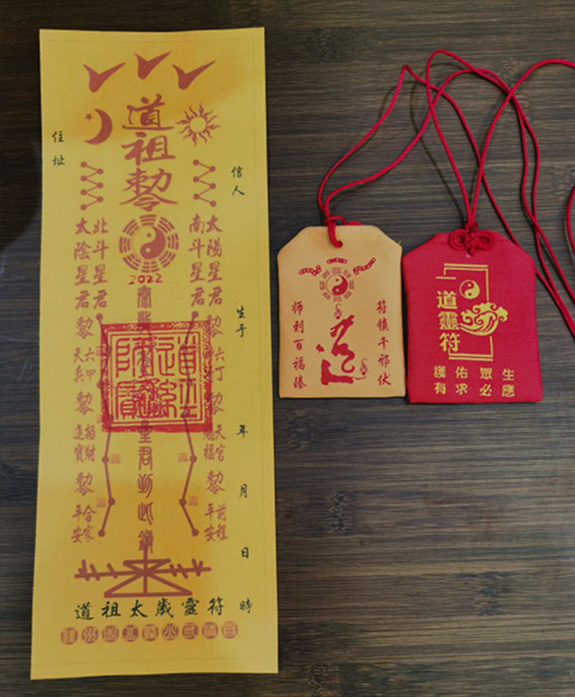 道祖勅
信人
生于
年
月
日
時
住址
太陽星君
南斗星君
北斗星君
太陰星君
2022
道經師寶
六丁
六甲
天兵
天官
福
招財
進寶
前程
平安
合家
平安
道祖太歲靈符
符鎮千邪伏
道
師利百福臻
道靈符
護佑眾生
有求必應